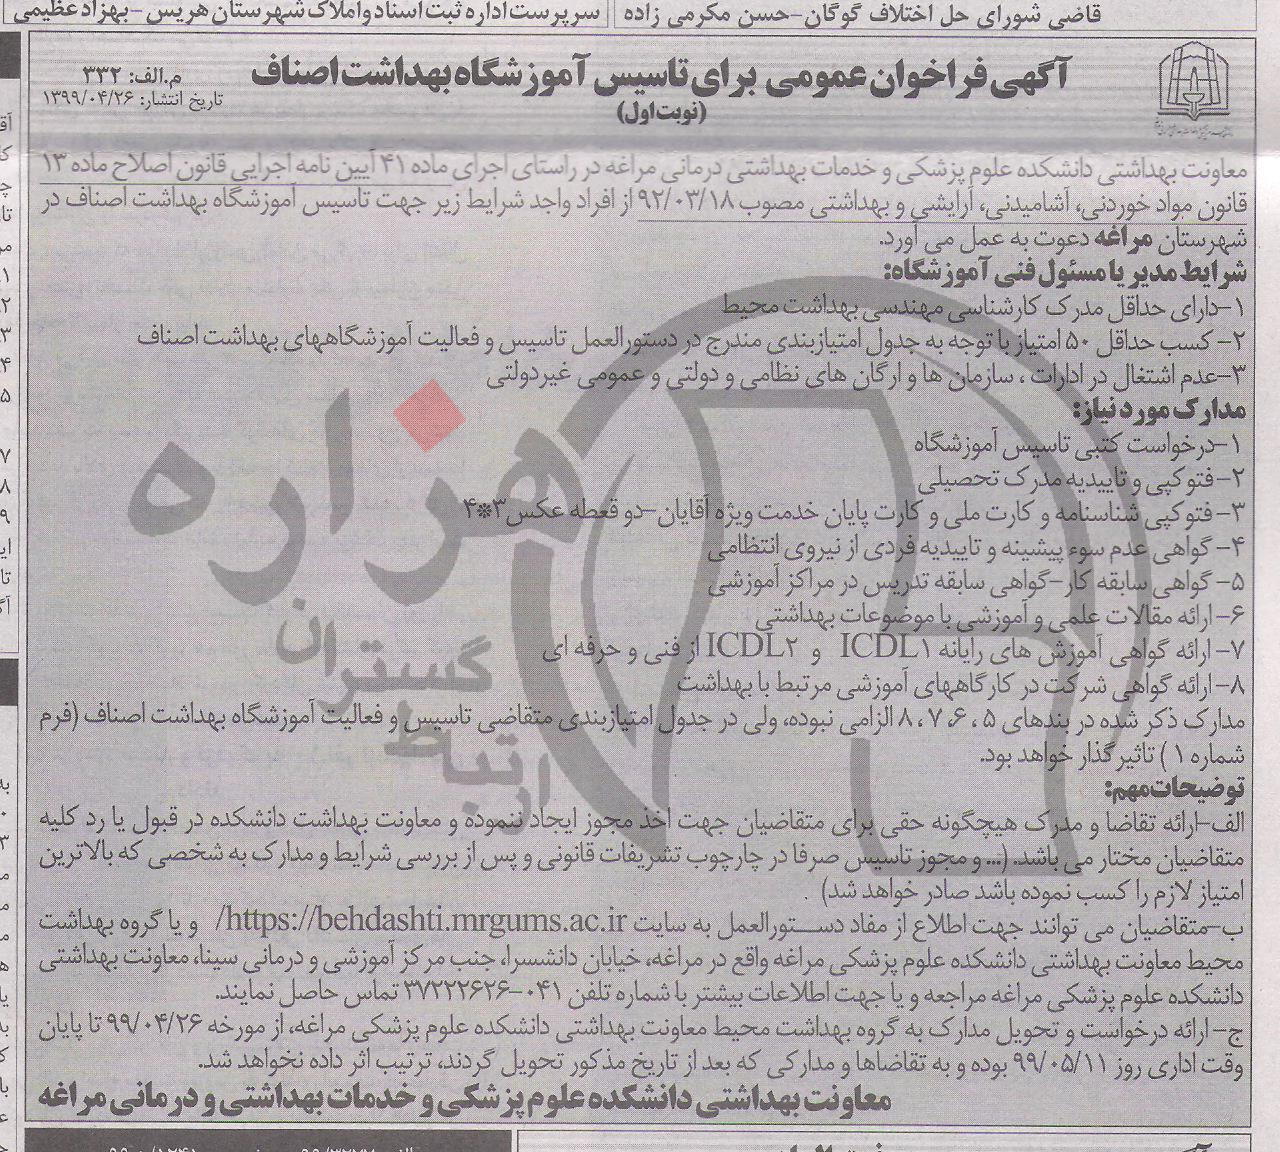 قاضی شورای حل اختلاف گوگان-حسن مکرمی زاده
سرپرست اداره ثبت اسناد و املاک شهرستان هریس - بهزاد عظیمی
آگهی فراخوان عمومی برای تاسیس آموزشگاه بهداشت اصناف
(نوبت اول)
م.الف: ۳۳۲
تاریخ انتشار: ۱۳۹۹/۰۴/۲۶
معاونت بهداشتی دانشکده علوم پزشکی و خدمات بهداشتی درمانی مراغه در راستای اجرای ماده ۴۱ آیین نامه اجرایی قانون اصلاح ماده ۱۳
قانون مواد خوردنی، آشامیدنی، آرایشی و بهداشتی مصوب ۹۲/۰۳/۱۸ از افراد واجد شرایط زیر جهت تاسیس آموزشگاه بهداشت اصناف در
شهرستان مراغه دعوت به عمل می آورد.
شرایط مدیر یا مسئول فنی آموزشگاه:
۱-دارای حداقل مدرک کارشناسی مهندسی بهداشت محیط
۲- کسب حداقل ۵۰ امتیاز با توجه به جدول امتیازبندی مندرج در دستورالعمل تاسیس و فعالیت آموزشگاههای بهداشت اصناف
۳-عدم اشتغال در ادارات ، سازمان ها و ارگان های نظامی و دولتی و عمومی غیردولتی
مدارک مورد نیاز:
۱-درخواست کتبی تاسیس آموزشگاه
۲-فتوکپی و تاییدیه مدرک تحصیلی
۳-فتوکپی شناسنامه و کارت ملی و کارت پایان خدمت ویژه آقایان-دو قعطه عکس۳*۴
۴- گواهی عدم سوء پیشینه و تاییدیه فردی از نیروی انتظامی
۵- گواهی سابقه کار-گواهی سابقه تدریس در مراکز آموزشی
۶- ارائه مقالات علمی و آموزشی با موضوعات بهداشتی
۷- ارائه گواهی آموزش های رایانه ICDL۱ و ICDL۲ از فنی و حرفه ای
۸-ارائه گواهی شرکت در کارگاههای آموزشی مرتبط با بهداشت
مدارک ذکر شده در بندهای ۵ ، ۶، ۷ ، ۸ الزامی نبوده، ولی در جدول امتیازبندی متقاضی تاسیس و فعالیت آموزشگاه بهداشت اصناف (فرم
شماره ۱ ) تاثیرگذار خواهد بود.
توضیحات مهم:
الف-ارائه تقاضا و مدرک هیچگونه حقی برای متقاضیان جهت اخذ مجوز ایجاد ننموده و معاونت بهداشت دانشکده در قبول یا رد کلیه
متقاضیان مختار می باشد. (... و مجوز تاسیس صرفا در چارچوب تشریفات قانونی و پس از بررسی شرایط و مدارک به شخصی که بالاترین
امتیاز لازم را کسب نموده باشد صادر خواهد شد) .
ب-متقاضیان می توانند جهت اطلاع از مفاد دستورالعمل به سایت https://behdashti.mrgums.ac.ir/ و یا گروه بهداشت
محیط معاونت بهداشتی دانشکده علوم پزشکی مراغه واقع در مراغه، خیابان دانشسرا، جنب مرکز آموزشی و درمانی سینا، معاونت بهداشتی
دانشکده علوم پزشکی مراغه مراجعه و یا جهت اطلاعات بیشتر با شماره تلفن ۰۴۱-۳۷۲۲۲۶۲۶ تماس حاصل نمایند.
ج- ارائه درخواست و تحویل مدارک به گروه بهداشت محیط معاونت بهداشتی دانشکده علوم پزشکی مراغه، از مورخه ۹۹/۰۴/۲۶ تا پایان
وقت اداری روز ۹۹/۰۵/۱۱ بوده و به تقاضاها و مدارکی که بعد از تاریخ مذکور تحویل گردند، ترتیب اثر داده نخواهد شد.
معاونت بهداشتی دانشکده علوم پزشکی و خدمات بهداشتی و درمانی مراغه
هزاره
گستران
ارتباط